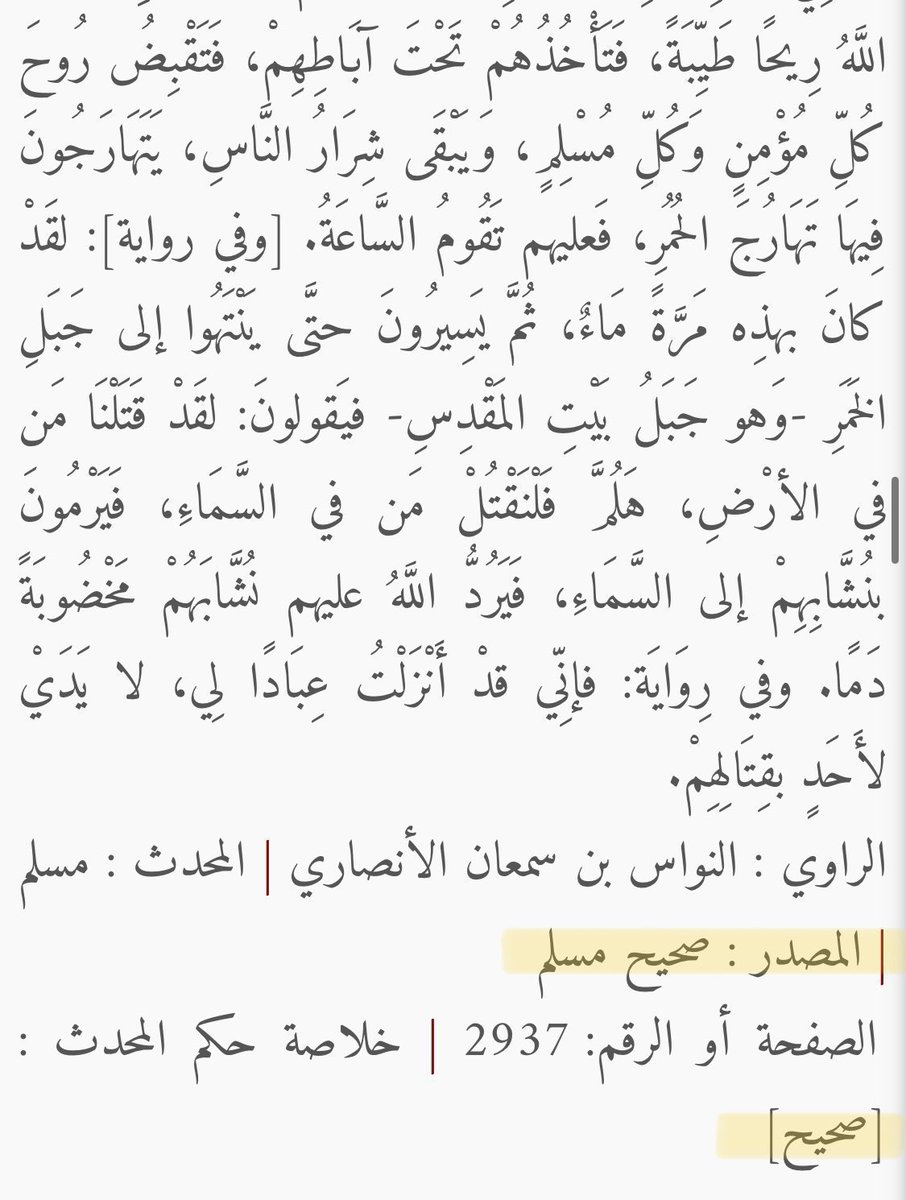 اللَّهُ رِيحًا طَيِّبَةً، فَتَأْخُذُهُمْ تَحْتَ آبَاطِهِمْ، فَتَقْبِضُ رُوحَ
كُلِّ مُؤْمِنٍ وَكُلِّ مُسْلِمٍ، وَيَبْقَى شِرَارُ النَّاسِ، يَتَهَارَجُونَ
فِيهَا تَهَارُجَ الحُمُرِ، فَعليهم تَقُومُ السَّاعَةُ. [وفي رواية]: لقَدْ
كانَ بهذِه مَرَّةً مَاءٌ، ثُمَّ يَسِيرُونَ حتَّى يَنْتَهُوا إلى جَبَلِ
الخَمَرِ -وَهو جَبَلُ بَيْتِ المَقْدِسِ- فيَقولونَ: لقَدْ قَتَلْنَا مَن
في الأرْضِ، هَلُمَّ فَلْنَقْتُلْ مَن في السَّمَاءِ، فَيَرْمُونَ
بنُشَّابِهِمْ إلى السَّمَاءِ، فَيَرُدُّ اللَّهُ عليهم نُشَّابَهُمْ مَخْضُوبَةً
دَمًا. وفي رِوَايَة: فإنِّي قدْ أَنْزَلْتُ عِبَادًا لِي، لا يَدَيْ
لأَحَدٍ بقِتَالِهِمْ.
الراوي : النواس بن سمعان الأنصاري | المحدث : مسلم
| المصدر : صحيح مسلم
الصفحة أو الرقم: 2937 | خلاصة حكم المحدث :
[صحيح]